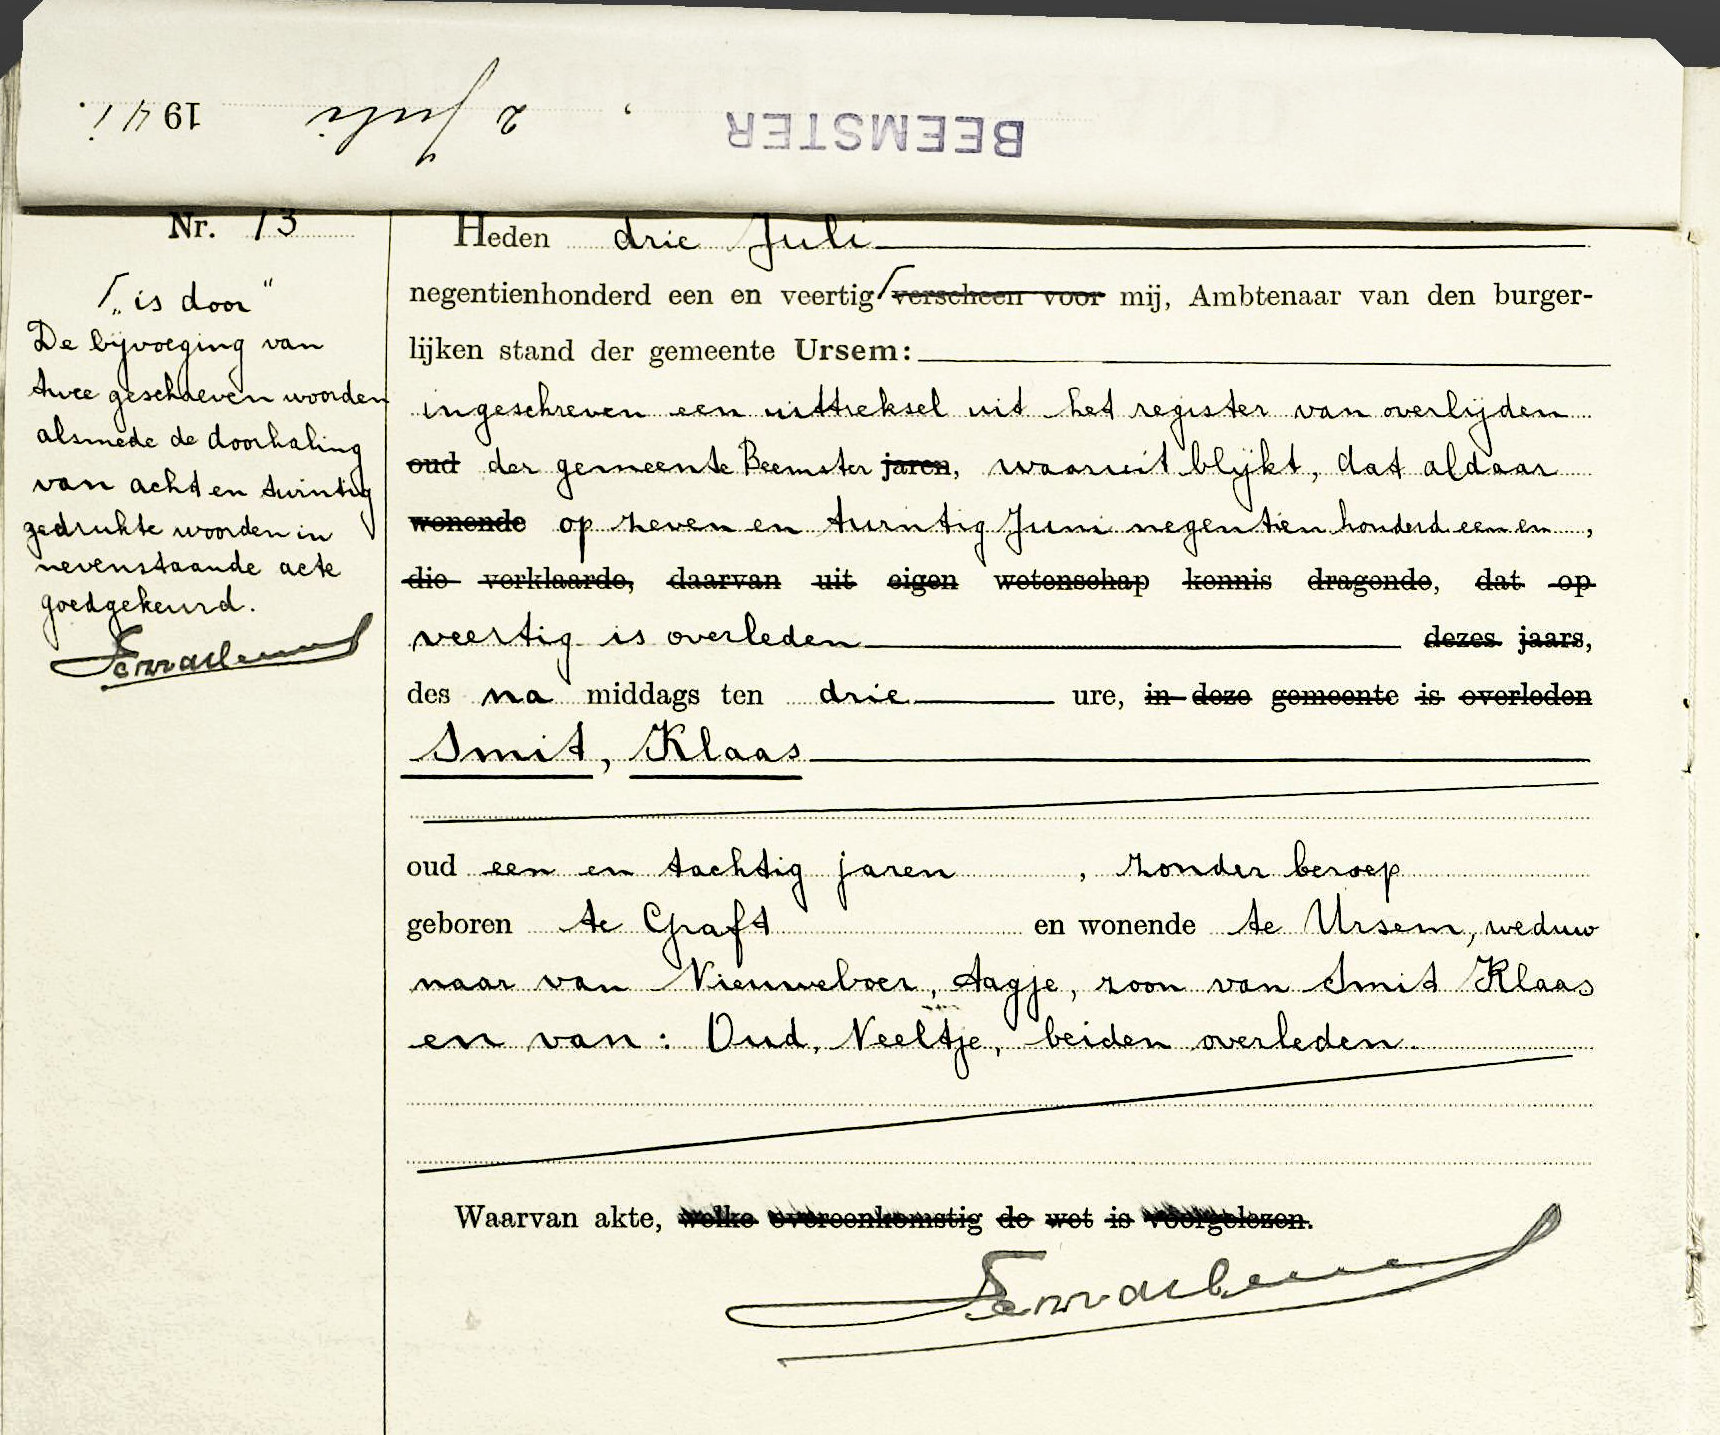 BEEMSTER, 2 Juli 1941.
Nr. 13
„is door"
De bijvoeging van
twee geschreven woorden
alsmede de doorhaling
van acht en twintig
gedrukte woorden in
nevenstaande acte
goedgekeurd.
Heden drie Juli
negentienhonderd een en veertig verscheen voor mij, Ambtenaar van den burger-
lijken stand der gemeente Ursem:
ingeschreven een uittreksel uit het register van overlijden
oud der gemeente Beemster jaren, waaruit blijkt, dat aldaar
wonende op zeven en twintig Juni negentien honderd een en,
die verklaarde, daarvan uit eigen wetenschap kennis dragende, dat op
veertig is overleden dezes jaars,
des na middags ten drie ure, in deze gemeente is overleden
Smit, Klaas
oud een en tachtig jaren, zonder beroep
geboren te Graft en wonende te Ursem, weduw
naar van Nieuweboer, Aagje, zoon van Smit Klaas
en van: Oud, Neeltje, beiden overleden.
Waarvan akte, welke overeenkomstig de wet is voorgelezen.